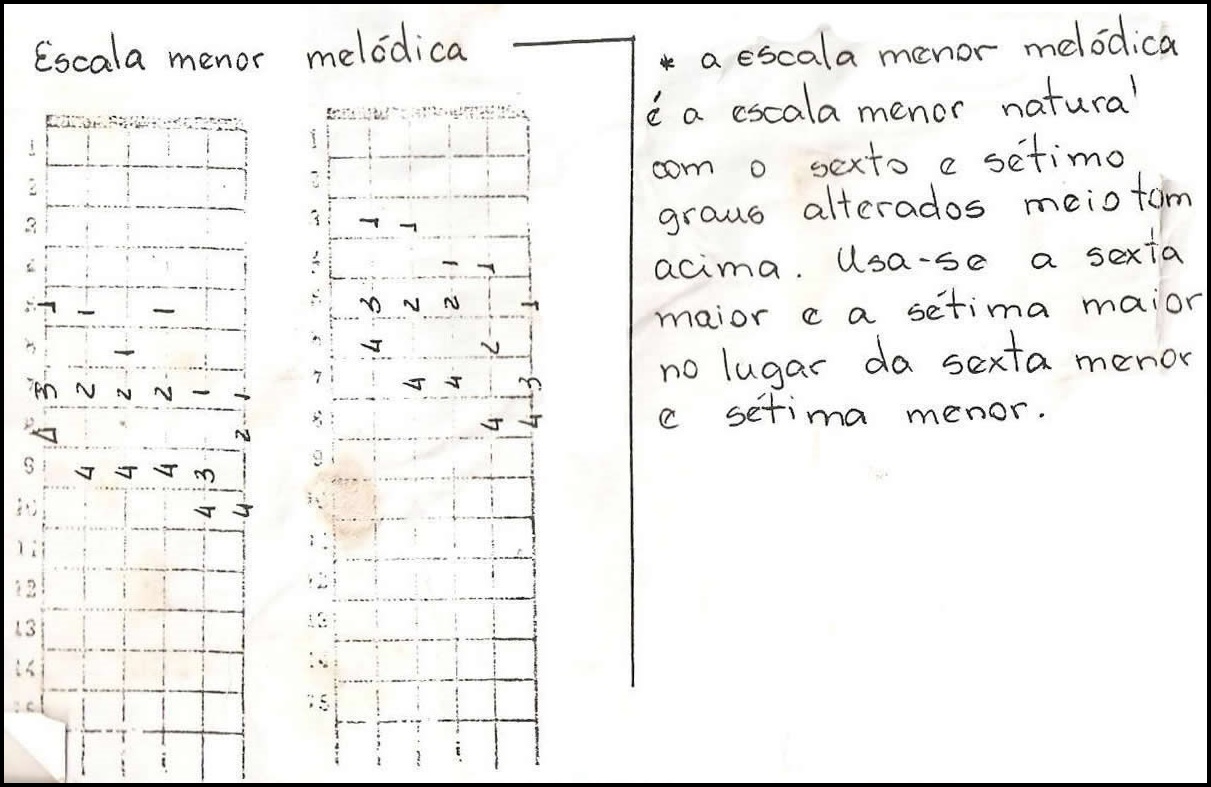 Escala menor melódica
1
2
3
4
5 1 1 1
6 1
7 3 2 2 2 1 1
8 4 2
9 4 4 4 3
10 4 4
11
12
13
14
1
2
3 1 1
4 1 1
5 3 2 2 1
6 4 2
7 4 4 3
8 4 4
9
11
12
13
14
15
* a escala menor melódica
é a escala menor natural
com o sexto e sétimo
graus alterados meio tom
acima. Usa-se a sexta
maior e a sétima maior
no lugar da sexta menor
e sétima menor.